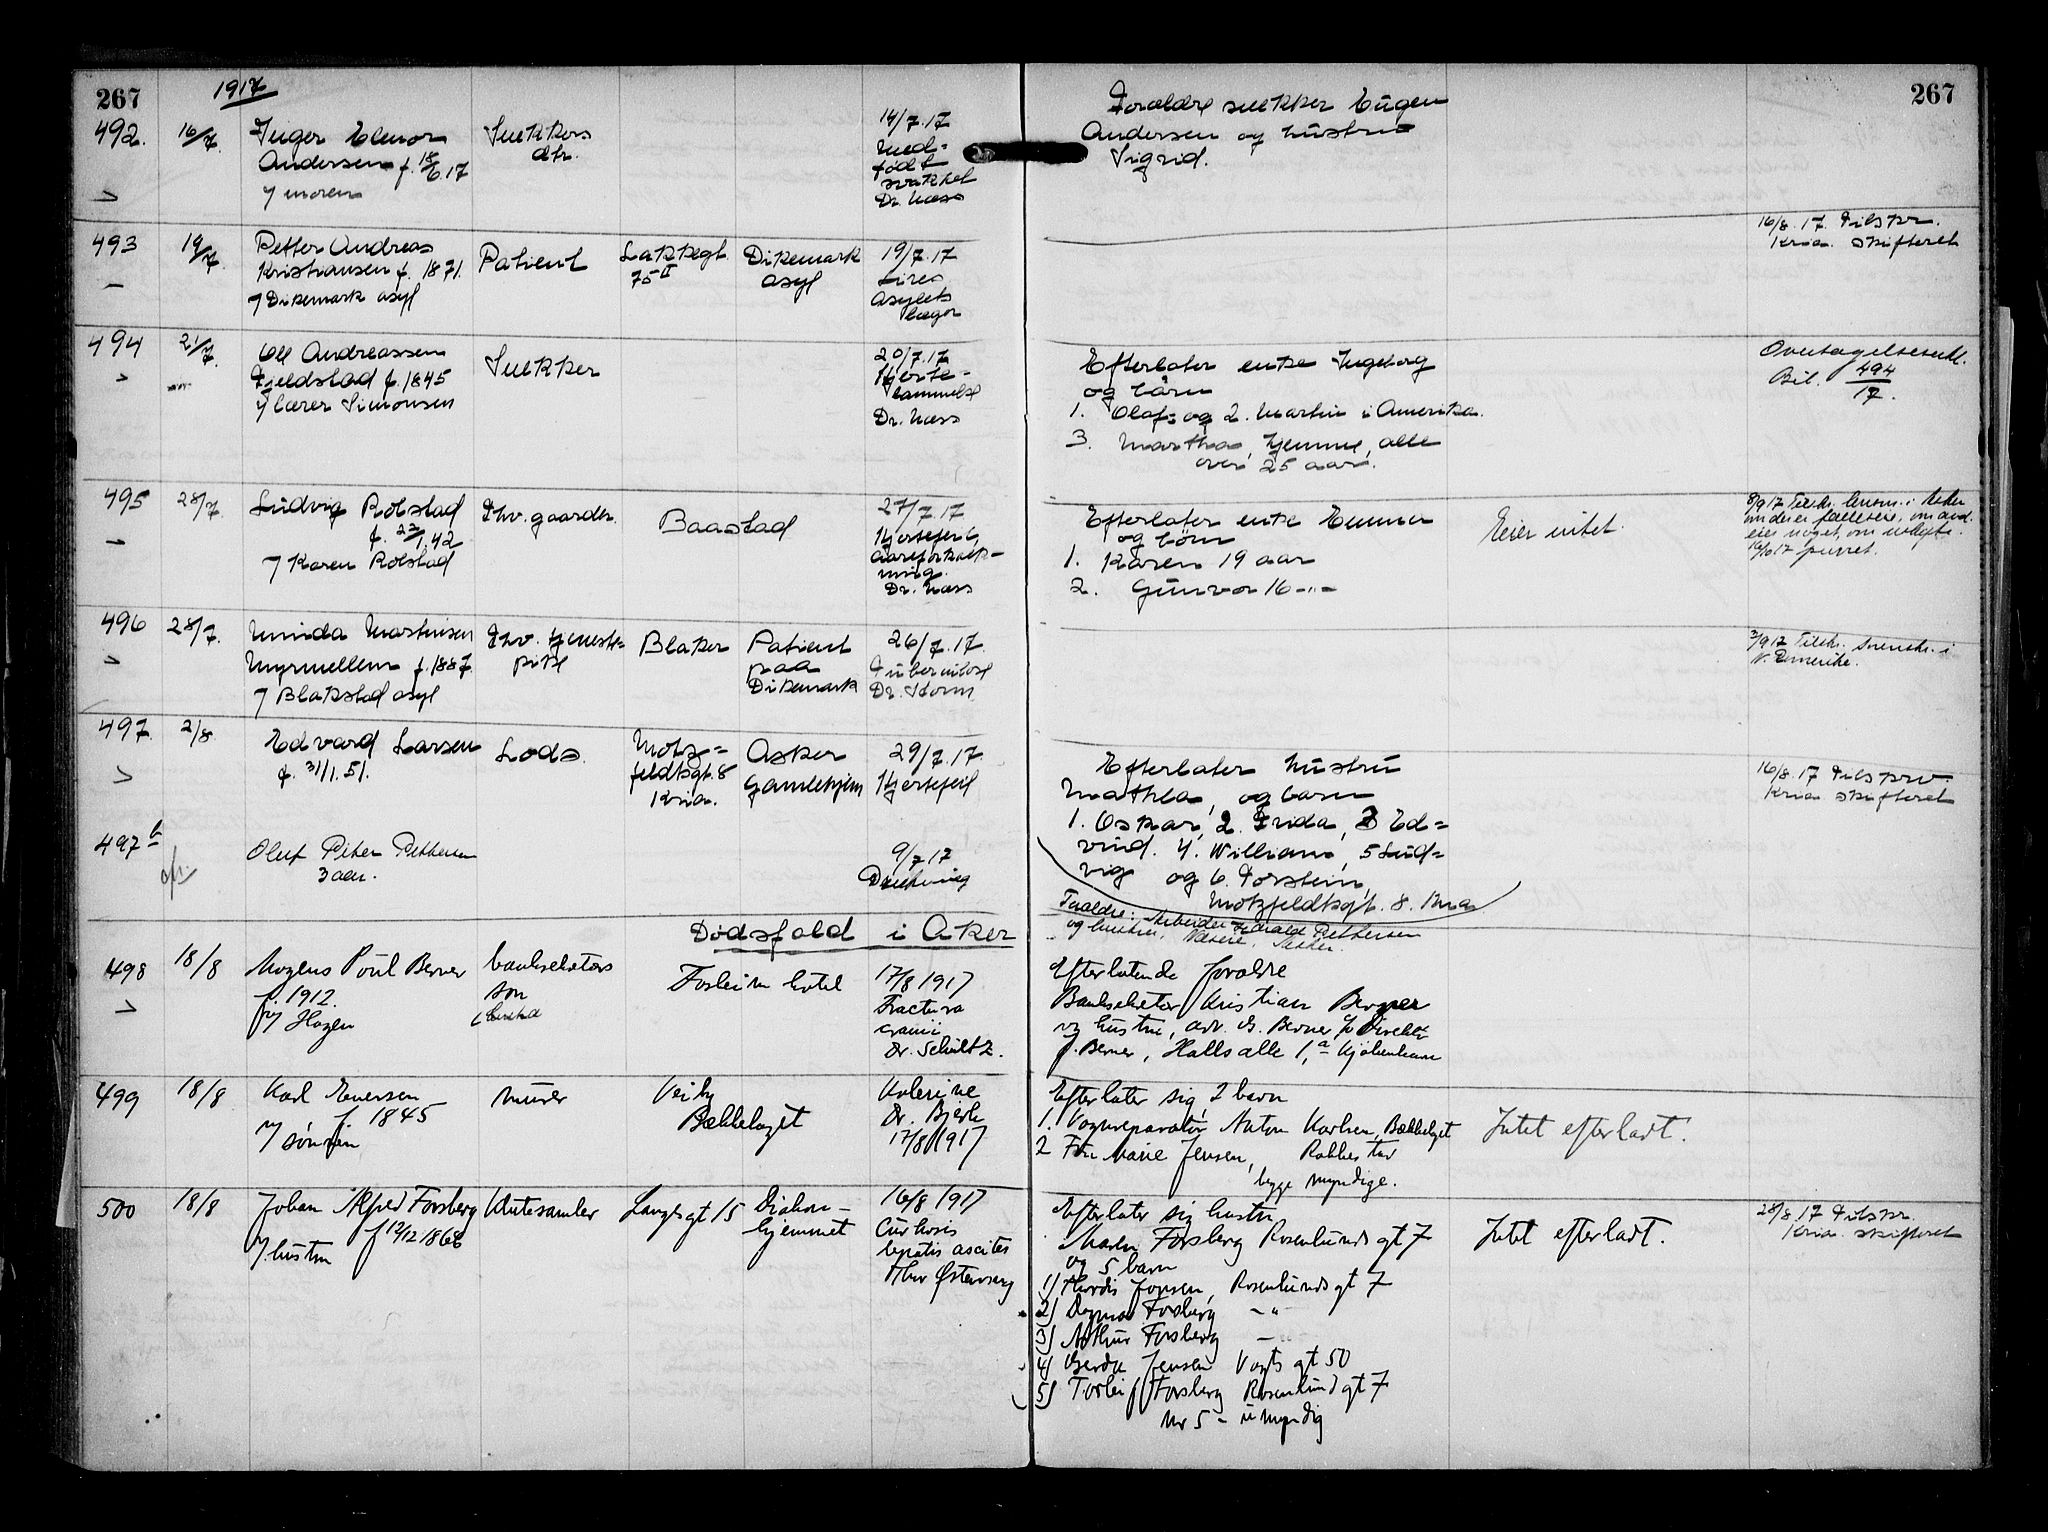 267
1917
267
492.
16/7.
Inger Elenor
Andersen f. 18/6.17
v/ moren
Snekkers
dtr.
14/7.17
Med=
født
svakhet
Dr. Næss
Forældre snekker Eugen
Andersen og hustru
Sigrid.
493
19/7.
Petter Andreas
Kristiansen f. 1871.
v/ Dikemark asyl
Patient
Lakkegt.
75 II
Dikemark
asyl
19/7.17
asylets
læger
16/8.17. Tilskr.
Kria. skifteret
494
21/7.
Ole Andreassen
Fjeldstad f. 1845
v/ lærer Simonsen
Snekker
20/7.17
Hjerte=
lammelse
Dr. Næss
Efterlater enke Ingeborg
og børn
1. Olaf og 2. Martin i Amerika.
3. Martha, hjemme, alle
over 25 aar.
Overtagelseserkl.
Bil. 494/17.
495
28/7.
Ludvig Rolstad
f. 22/1.42
v/ Karen Rolstad
Fhv. gaardbr.
Baastad
27/7.17
Hjertefeil,
aareforkalk-
ning.
Dr. Næss
Efterlater enke Emma
og børn
1. Karen 19 aar
2. Gunvor 16 -"-
Eier intet.
8/9 17 Tilskr.
16/10 17 purret.
496
28/7.
Minda Martinsen
Myrmellem f. 1887.
v/ Blakstad asyl
Fhv. tjeneste-
pike
Blaker
Patient
paa
Dikemark
26/7.17.
Tuberkulose
Dr. Storm
3/9 17 Tilskr. sorenskr. i
N. Romerike.
497.
2/8.
Edvard Larsen
f. 31/1.51.
Lods.
Motz=
feldtsgt. 8
Kria.
Asker
Gamlehjem
29/7.17.
Hjertefeil
Efterlater hustru
Mathea, og barn
1. Oskar, 2. Frida, 3 Ed=
vind. 4. William, 5 Lud=
vig og 6. Torstein,
Motzfeldtsgt. 8. Kria
16/8.17 Tilskrev
Kria skifteret
497 b
Oluf Peter Pettersen
3 aar.
9/7 17
Drukning
Forældre: Arbeider Harald Pettersen
og hustru,
Dødsfald i Aker
498
18/8
Mogens Poul Berner
f. 1912.
v/ Hagen
banksekretærs
søn
17/8 1917
Fractura
cranii
Dr. Schultz.
Efterlatende forældre
Banksekretær Kristian Berner
og hustru, adr. G. Berner p/ Direktør
J. Berner, Halls alle 1, a Kjøbenhavn
499
18/8
Karl Evensen
f. 1845
v/ sønnen
murer
Bækkelaget
Dr. Bjerke
17/8 1917
Efterlater sig 2 barn
1. Vognreparatør Anton Karlsen, Bækkelaget
2 Fru Marie Jensen,
begge myndige.
Intet efterladt.
500
18/8
Johan Alfred Forsberg
f 12/12 1868
v/ hustru
Klutesamler
Langesgt 15
Diakon-
hjemmet
16/8 1917
Cirrhosis
hepatis ascites
Efterlater sig hustru
Maren Forsberg Rosenlunds gt 7
og 5 barn
1) Hjørdis Jonsen, Rosenlunds gt 7
2) Dagmar Forsberg -"-
3) Arthur Forsberg -"-
4) Gerda Jensen Vogts gt 50
5) Torleif Forsberg Rosenlund gt 7
Nr 5 - umyndig
Intet efterladt.
28/8.17 Tilskr.
Kria. skifteret